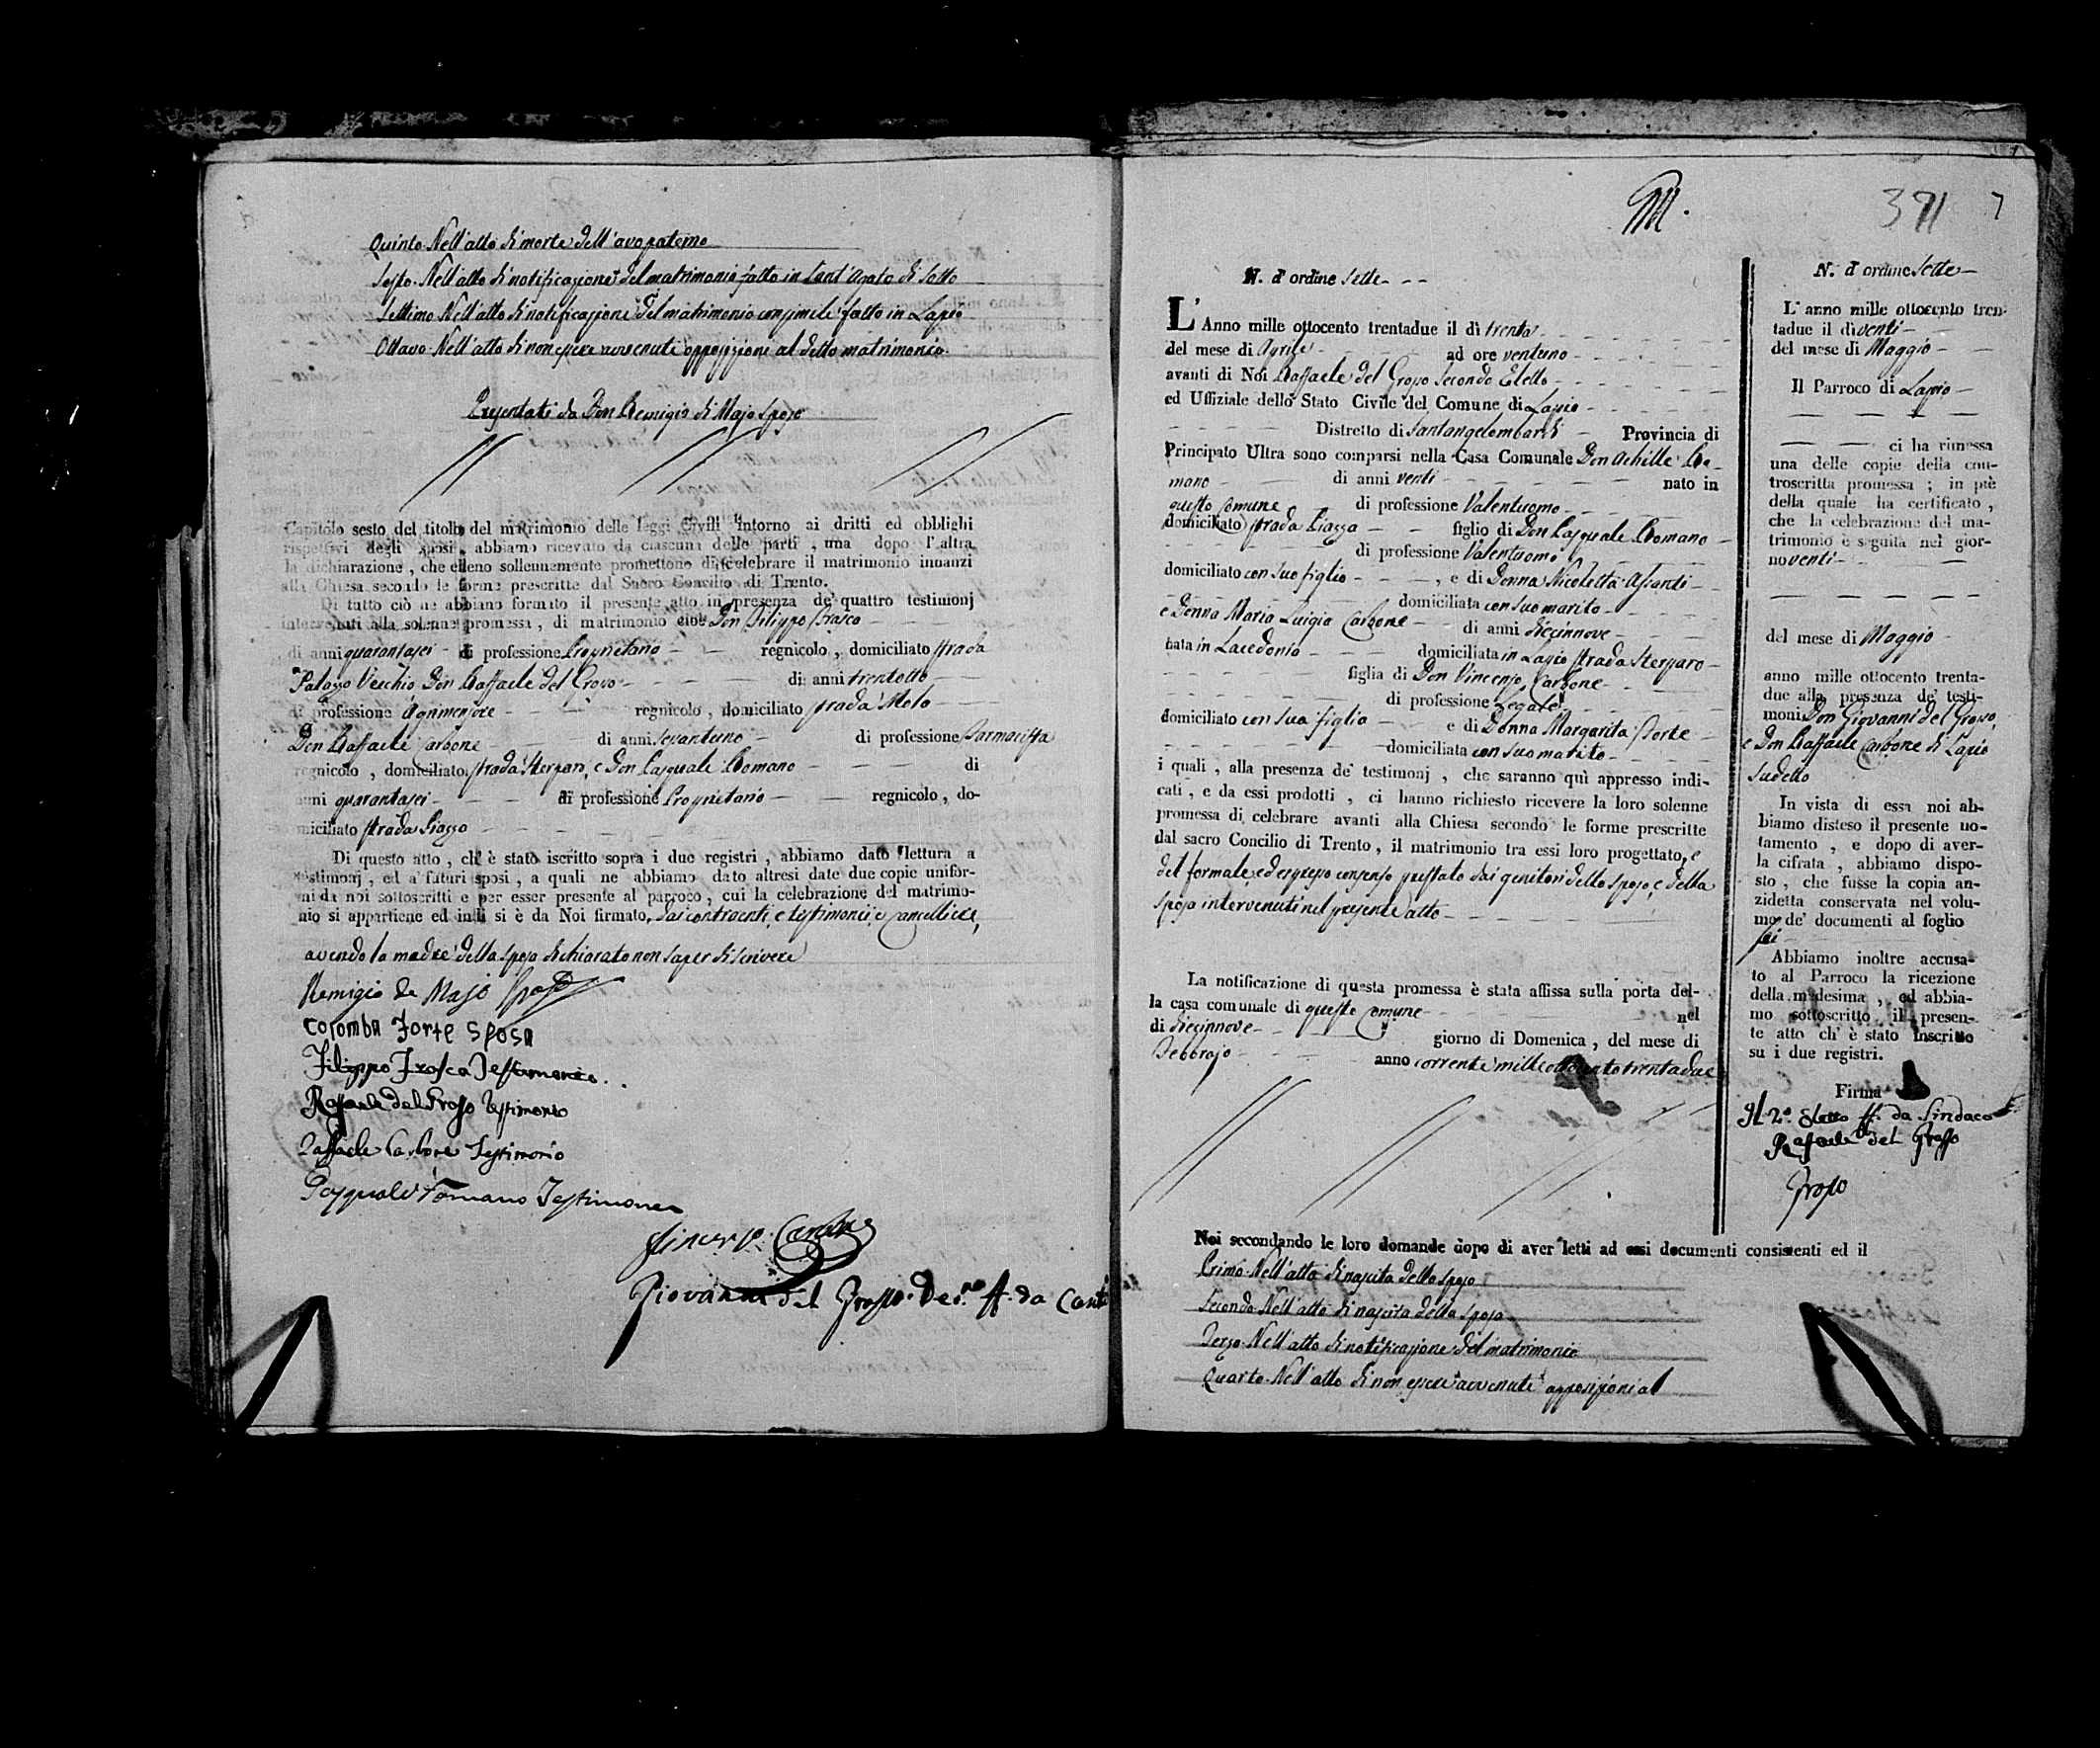 Quinto Nell'atto di morte dell'avo paterno
Sesto Nell'atto di notificazione del matrimonio fatto in Sant'Agata di Sotto
Settimo Nell'atto di notificazione del matrimonio consimile fatto in Lapio
Ottavo Nell'atto di non essere avvenute opposizioni al detto matrimonio
Presentati da Don Remigio di Majo sposo
Capitolo sesto del titolo del matrimonio delle leggi Civili intorno ai dritti ed obblighi
rispettivi degli sposi, abbiamo ricevuto da ciascuna delle parti, una dopo l'altra
la dichiarazione, che elleno sollennemente promettono di celebrare il matrimonio innanzi
alla Chiesa secondo le forme prescritte dal Sacro Concilio di Trento.
Di tutto ciò ne abbiamo formato il presente atto in presenza de' quattro testimonj
intervenuti alla solenne promessa, di matrimonio cioè Don Filippo Frasca
di anni quarantasei di professione Proprietario regnicolo, domiciliato strada
Palazzo Vecchio Don Raffaele del Grosso di anni trentotto
di professione Agrimensore regnicolo, domiciliato strada Molo
Don Raffaele Carbone di anni di professione Farmacista
regnicolo, domiciliato strada Sterparo, e Don Pasquale Romano di
anni quarantasei di professione Proprietario regnicolo, do-
miciliato strada Piazza
Di questo atto, ch' è stato iscritto sopra i due registri, abbiamo dato lettura a
testimonj, ed a' futuri sposi, a quali ne abbiamo dato altresì date due copie unifor-
mi da noi sottoscritti e per esser presente al parroco, cui la celebrazione del matrimo-
nio si appartiene ed indi si è da Noi firmato, dai contraenti, e testimonii e Cancelliere,
avendo la madre della sposa dichiarato non saper di scrivere
Remigio de Majo sposo
Colomba Forte sposa
Filippo Frasca Testimonio
Raffaele del Grosso Testimonio
Raffaele Carbone Testimonio
Pasquale Romano Testimone
Vincenzo Carbone
Giovanni del Grosso Dec.no ff. da Canc
M.
371 7
N. d'ordine Sette
L'Anno mille ottocento trentadue il dì trenta
del mese di Aprile ad ore ventuno
avanti di Noi Raffaele del Grosso Secondo Eletto
ed Uffiziale dello Stato Civile del Comune di Lapio
Distretto di Santangelombardi Provincia di
Principato Ultra sono comparsi nella Casa Comunale Don Achille Ro-
mano di anni venti nato in
questo Comune di professione Valentuomo
domiciliato strada Piazza figlio di Don Pasquale Romano
di professione Valentuomo
domiciliato con suo figlio, e di Donna Nicoletta
domiciliata con suo marito
e Donna Maria Luigia Carbone di anni diecinnove
nata in Lacedonia domiciliata in Lapio strada Sterparo
figlia di Don Vincenzo Carbone
di professione Legale
domiciliato con sua figlia e di Donna Margarita Forte
domiciliata con suo marito
i quali, alla presenza de' testimonj, che saranno quì appresso indi-
cati, e da essi prodotti, ci hanno richiesto ricevere la loro solenne
promessa di celebrare avanti alla Chiesa secondo le forme prescritte
dal sacro Concilio di Trento, il matrimonio tra essi loro progettato, e
del formale, ed espresso consenso prestato dai genitori dello sposo, e della
sposa intervenuti nel presente atto
La notificazione di questa promessa è stata affissa sulla porta del-
la casa comunale di questo Comune nel
di diecinnove giorno di Domenica, del mese di
Febbrajo anno corrente mille ottocento trentadue
Noi secondando le loro domande dopo di aver letti ad essi documenti consistenti ed il
Primo Nell'atto di nascita dello sposo
Secondo Nell'atto di nascita della sposa
Terzo Nell'atto di notificazione del matrimonio
Quarto Nell'atto di non essere avvenute opposizioni al
N. d'ordine Sette
L'anno mille ottocento tren-
tadue il dì venti
del mese di Maggio
Il Parroco di Lapio
ci ha rimessa
una delle copie della con-
troscritta promessa; in piè
della quale ha certificato,
che la celebrazione del ma-
trimonio è seguita nel gior-
no venti
del mese di Maggio
anno mille ottocento trenta-
due alla presenza de' testi-
moni Don Giovanni del Grosso,
e Don Raffaele Carbone di Lapio
sudetto
In vista di essa noi ab-
biamo disteso il presente no-
tamento, e dopo di aver-
la cifrata, abbiamo dispo-
sto, che fusse la copia an-
zidetta conservata nel volu-
me de' documenti al foglio
sei
Abbiamo inoltre accusa-
to al Parroco la ricezione
della medesima, ed abbia-
mo sottoscritto il presen-
te atto ch' è stato inscritto
su i due registri.
Firma
Il 2.º Eletto ff. da Sindaco
Raffaele del Grosso
Grosso